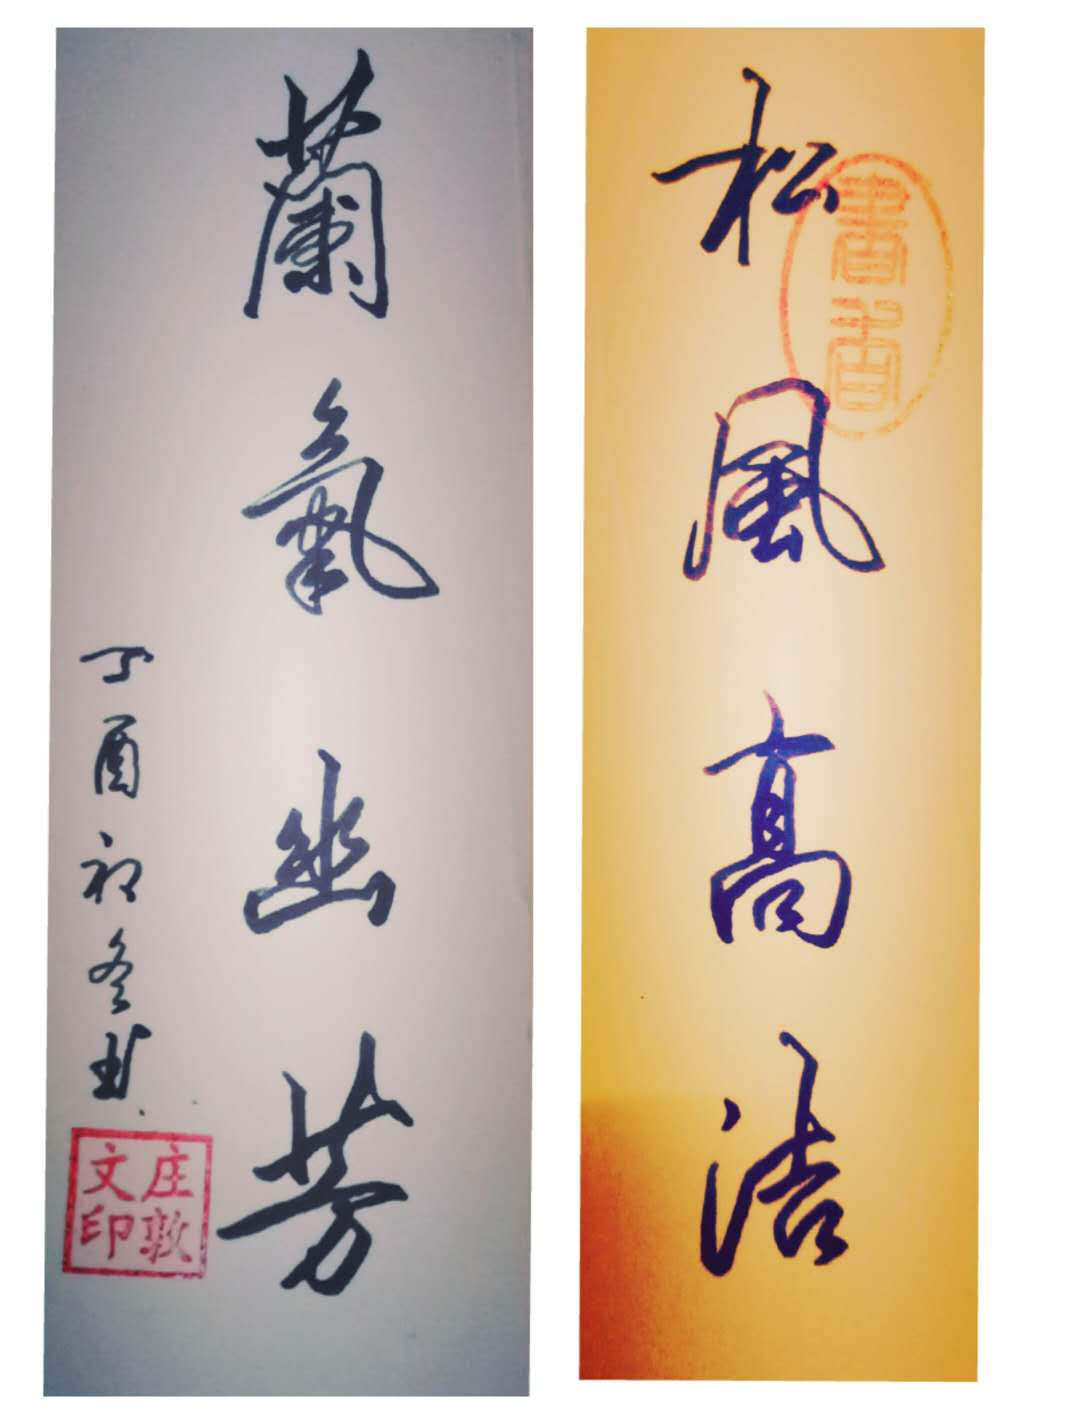 松風高洁
書香
蘭氣幽芳
丁酉初冬
庄敦
文印